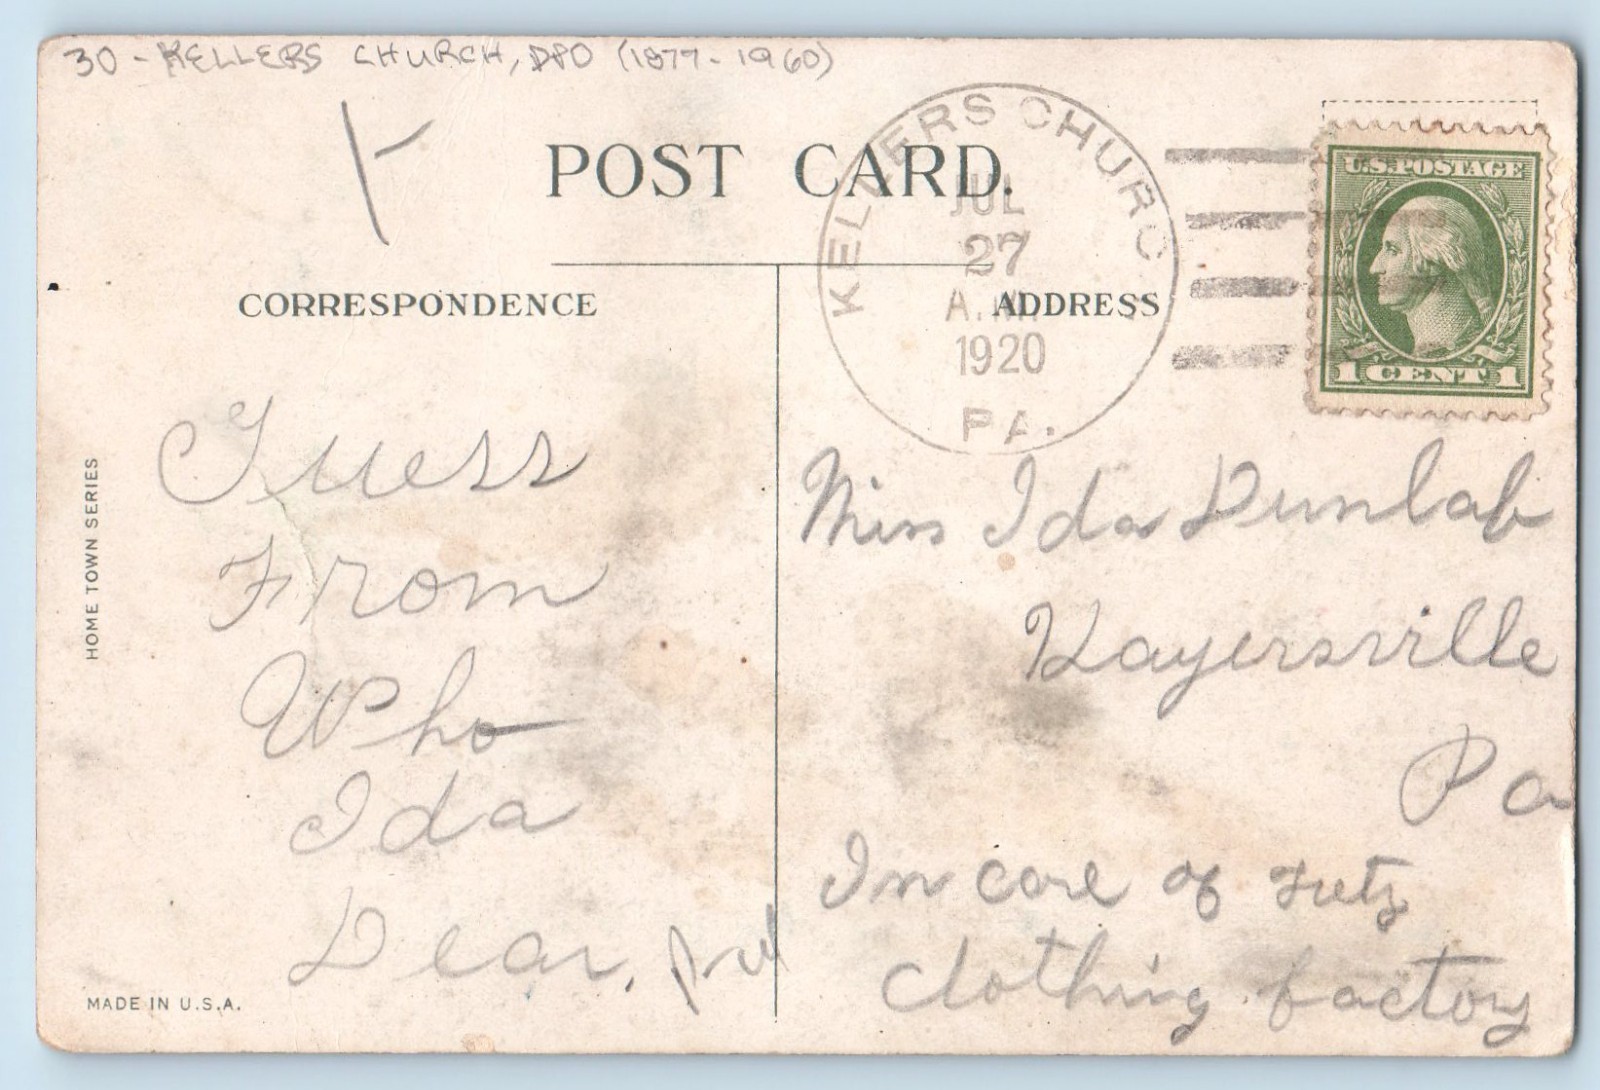 30 - KELLERS CHURCH, DPO (1877-1960)
POST CARD.
KELLERS CHURC
JUL
27
A.M.
1920
PA.
U.S. POSTAGE
1 CENT 1
CORRESPONDENCE
ADDRESS
HOME TOWN SERIES
MADE IN U.S.A.
Guess
From
Who
Ida
Dear,
Miss Ida Dunlab
Kayersville
Pa
In care of Fretz
Clothing factory